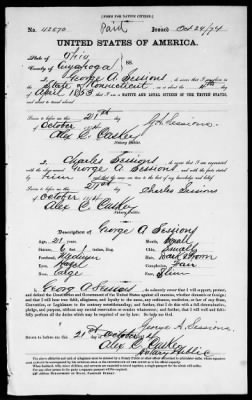 [FORM FOR NATIVE CITIZEN.]
No. 42670 Paid Issued Oct 24/74
UNITED STATES OF AMERICA.
State of Ohio
County of Cuyahoga } ss:
I, George A. Sessions, do swear that I was born in the
State of Connecticut on or about the day of
April 1853; that I am a NATIVE AND LOYAL CITIZEN OF THE UNITED STATES,
and about to travel abroad.
Sworn to before me, this 21st day
of October 1874
G.A. Sessions.
Alex C. Caskey
Notary Public
I, Charles Sessions, do swear that I am acquainted with
the above-named George A. Sessions, and with the facts above stated by
him, and that the same are true to the best of my knowledge and belief.
Sworn to before me, this 21st day
of October 1874
Charles Sessions
Alex C. Caskey
Notary Public
Description of George A. Sessions
Age, 21 years.
Stature, 6 feet inches, Eng.
Forehead, Medium
Eyes, Hazel
Nose, Large
Mouth, Small
Chin, Small
Hair, Dark Brown
Complexion, Fair
Face, Thin
I, Geo. A Sessions, do solemnly swear that I will support, protect, and
defend the Constitution and Government of the United States against all enemies, whether domestic or foreign;
and that I will bear true faith, allegiance, and loyalty to the same, any ordinance, resolution, or law of any State,
Convention, or Legislature to the contrary notwithstanding; and further, that I do this with a full determination,
pledge, and purpose, without any mental reservation or evasion whatsoever; and further, that I will well and
faithfully perform all the duties which may be required of me by law: So help me God.
George A. Sessions.
Sworn to before me, this
21st day of October 1874
Alex C. Caskey
Notary Public